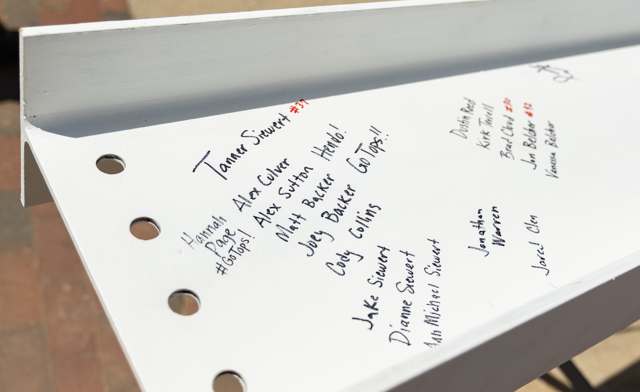 Tanner Siewert #37
Alex Culver
Alex Sutton Hendo!
Matt Backer
Joey Backer Go Tops!!
Cody Collins
Hannah
Page
#GoTops!
Jake Siewert
Dianne Siewert
Michael Siewert
Dustin Reed
Kirk Tirrell
Brad Chard
Jon Belcher #92
Vanessa Belcher
Jonathan
Warren
Jared